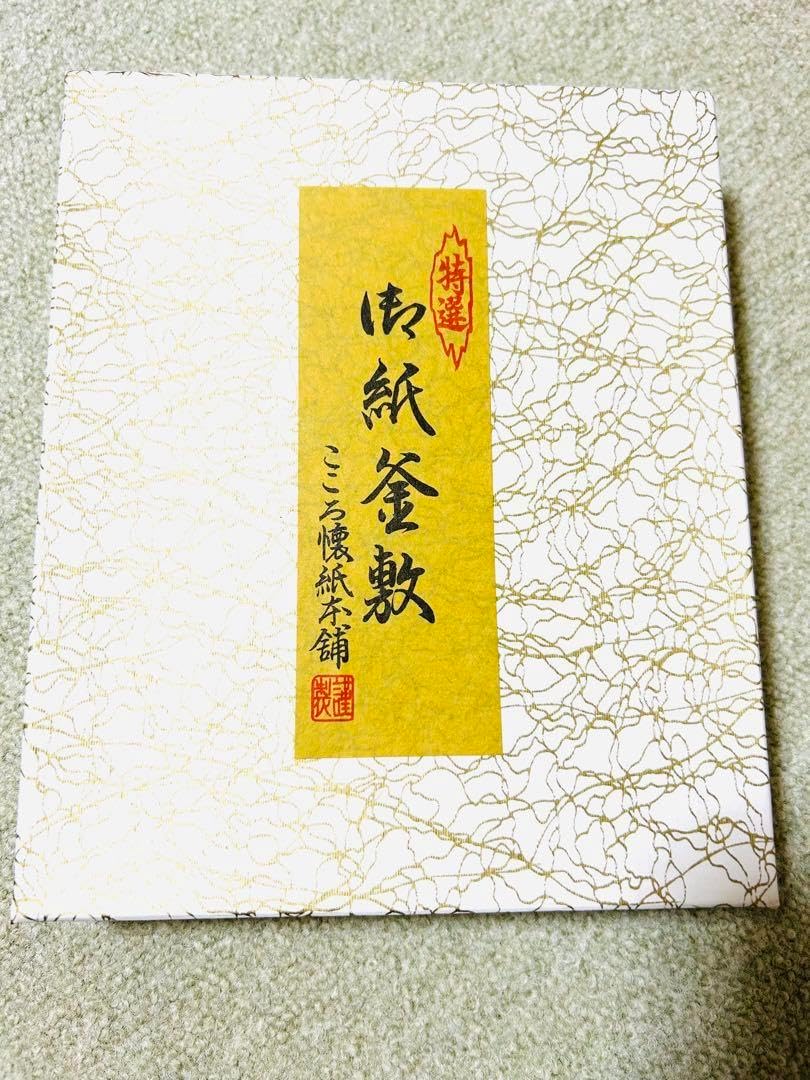 特選
御紙釜敷
こころ懐紙本舗
謹製